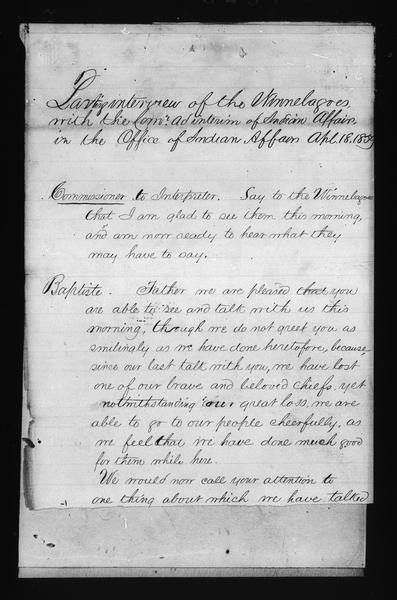 Parting interview of the Winnebagoes
with the Comr. ad interim of Indian Affairs,
in the Office of Indian Affairs Apl. 18. 1859
Commissioner to Interpreter. Say to the Winnebagoes
that I am glad to see them this morning,
and am now ready to hear what they
may have to say.
Baptiste. Father we are pleased that you
are able to see and talk with us this
morning, though we do not greet you as
smilingly as we have done heretofore, because,
since our last talk with you, we have lost
one of our brave and beloved chiefs, yet
notwithstanding our great loss, we are
able to go to our people cheerfully, as
we feel that we have done much good
for them while here.
We would now call your attention to
one thing about which we have talked